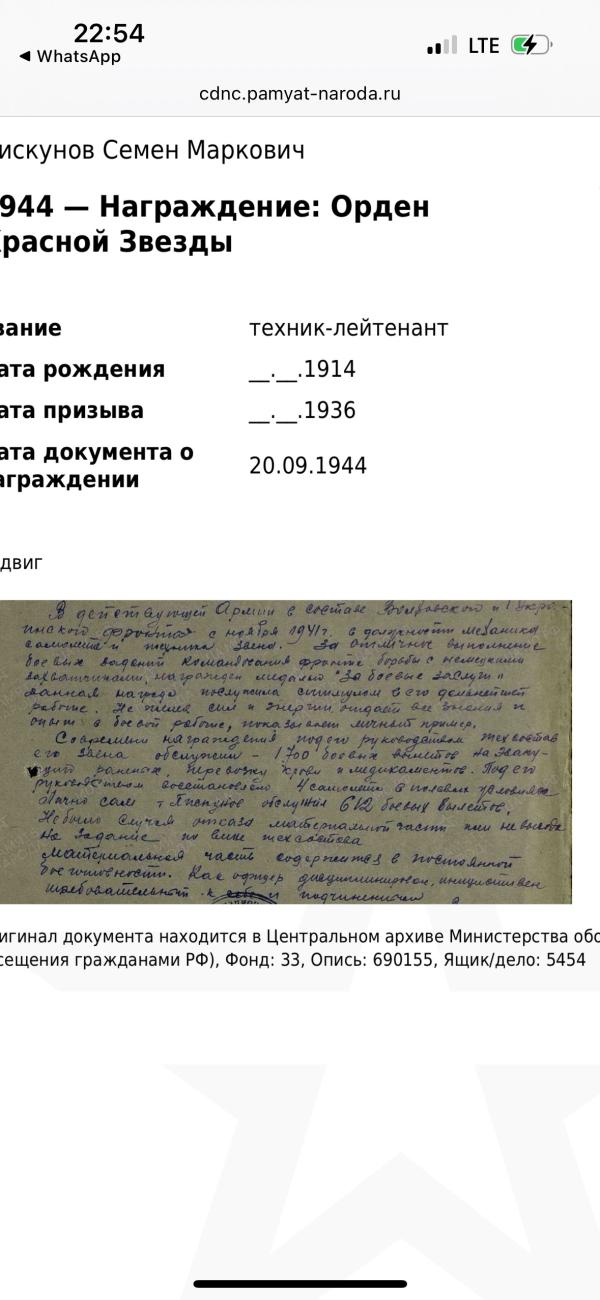 22:54
WhatsApp
LTE
cdnc.pamyat-naroda.ru
искунов Семен Маркович
944 — Награждение: Орден
Красной Звезды
вание
техник-лейтенант
ата рождения
__.__.1914
ата призыва
__.__.1936
ата документа о
аграждении
20.09.1944
двиг
В действующей Армии в составе Волховского и 1 Укра-
инского фронтов с ноября 1941г. в должности механика
самолета и техника звена. За отличное выполнение
боевых заданий командования фронта борьбы с немецкими
захватчиками, награжден медалью "За боевые заслуги"
данная награда послужила стимулом в его дальнейшей
работе. Не жалея сил и энергии отдает все знания и
опыт в боевой работе, показывает личный пример.
Со времени награждения под его руководством техсостав
его звена обслужен - 1700 боевых вылетов на эваку-
ацию раненых, перевозку крови и медикаментов. Под его
руководством восстановлено 4 самолета в полевых условиях
Лично сам т. обслужил 612 боевых вылетов.
Не было случая отказа материальной части или не выхода
на задание по вине техсостава
Материальная часть содержится в постоянной
боеготовности. Как офицер дисциплинирован, инициативен
требовательный к себе и подчиненным
игинал документа находится в Центральном архиве Министерства обо
сещения гражданами РФ), Фонд: 33, Опись: 690155, Ящик/дело: 5454